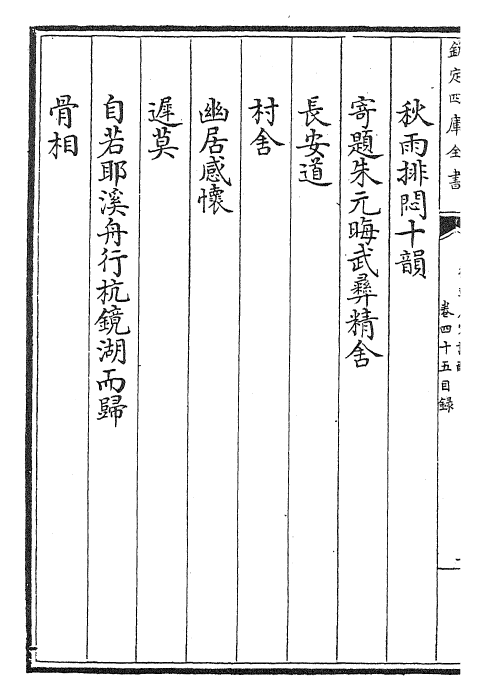 欽定四庫全書
卷四十五目録
秋雨排悶十韻
寄題朱元晦武彝精舍
長安道
村舍
幽居感懷
遲莫
自若耶溪舟行杭鏡湖而歸
骨相